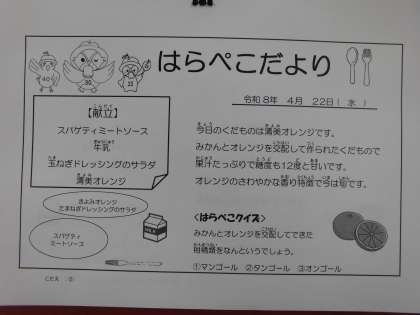 はらぺこだより
令和8年 4月 22日(水)
【献立】
スパゲティミートソース
牛乳
玉ねぎドレッシングのサラダ
清美オレンジ
きよみオレンジ
たまねぎドレッシングのサラダ
スパゲティ
ミートソース
今日のくだものは清美オレンジです。
みかんとオレンジを交配して作られたくだもので
果汁たっぷりで糖度も12度と甘いです。
オレンジのさわやかな香り特徴で今は旬です。
<はらぺこクイズ>
みかんとオレンジを交配してできた
柑橘類をなんというでしょう。
①マンゴール ②タンゴール ③オンゴール
こたえ ②